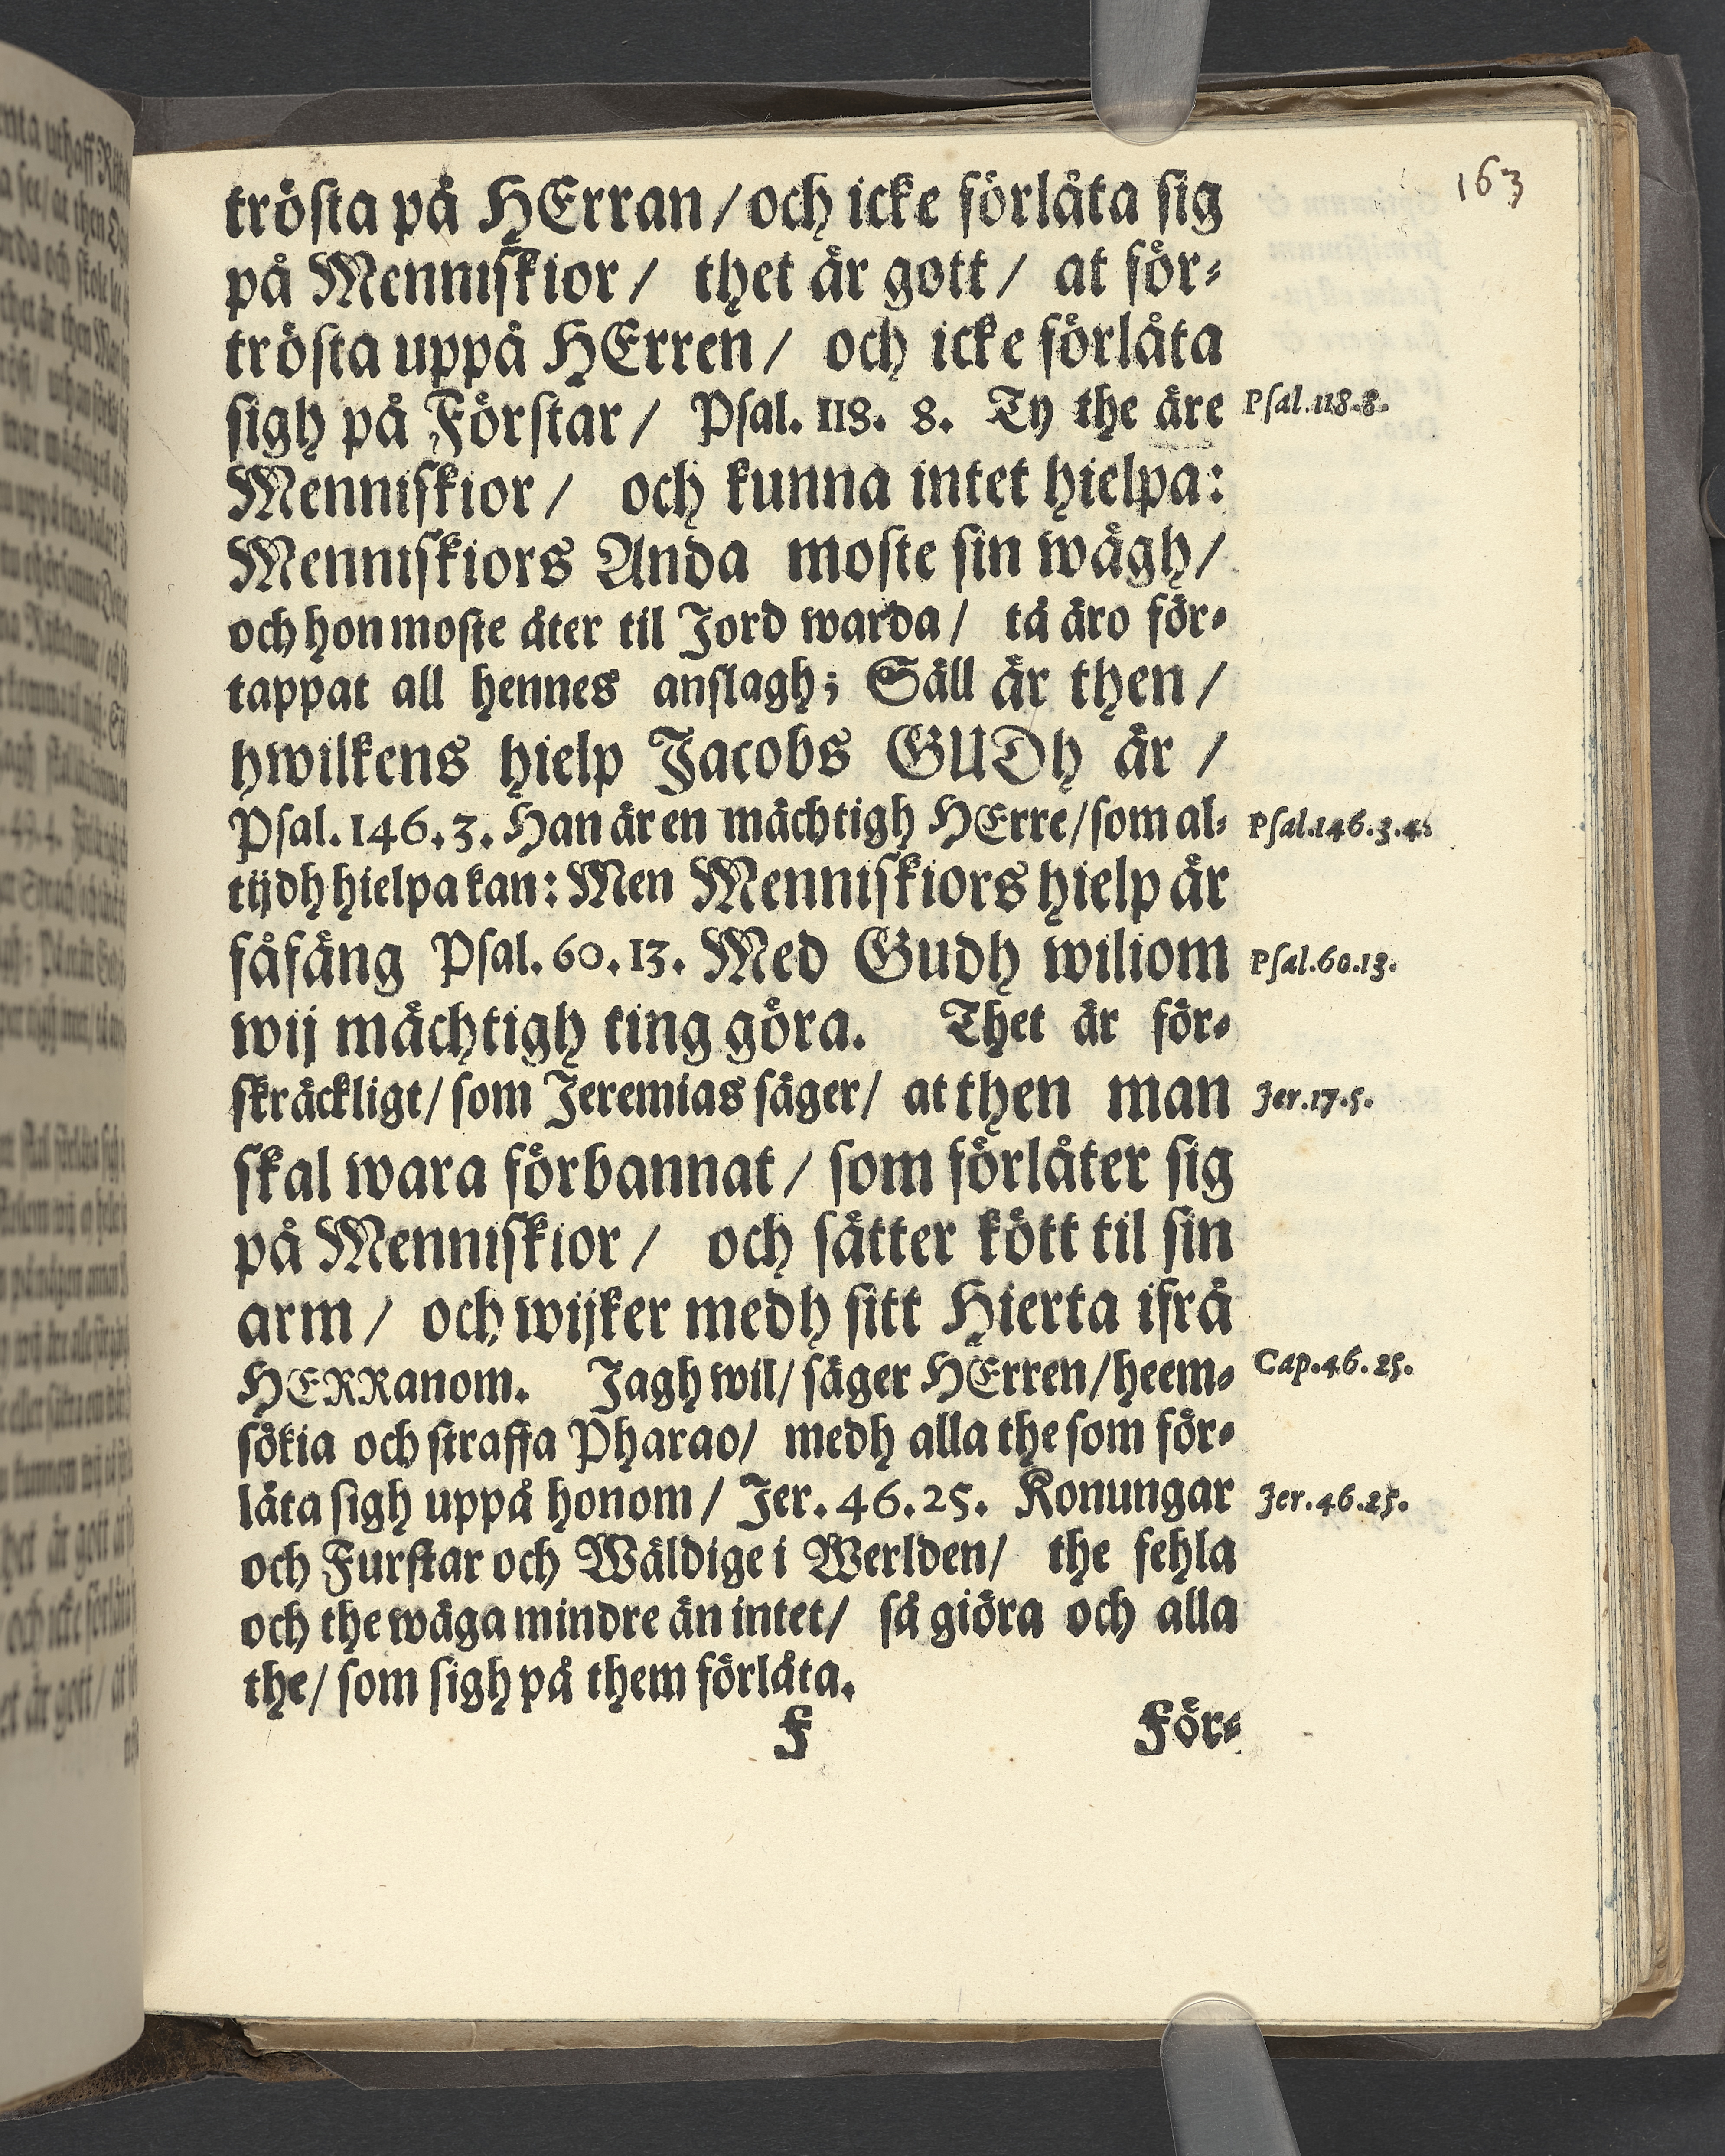 163
trösta på HErran / och icke förlåta sig
på Menniskior / thet är gott / at för-
trösta uppå HErren / och icke förlåta
sigh på Förstar / Psal. 118. 8. Ty the äre
Psal. 118. 8.
Menniskior / och kunna intet hielpa:
Menniskiors Anda moste sin wägh /
och hon moste åter til Jord warda / tå äro för-
tappat all hennes anslagh; Säll är then /
hwilkens hielp Jacobs GUDh är /
Psal. 146. 3. Han är en mächtigh HErre / som al-
Psal. 146. 3. 4.
tijdh hielpa kan: Men Menniskiors hielp är
fåfäng Psal. 60. 13. Med Gudh wiliom
Psal. 60. 13.
wij mächtigh ting göra. Thet är för-
skräckligt / som Jeremias säger / at then man
Jer. 17. 5.
skal wara förbannat / som förlåter sig
på Menniskior / och sätter kött til sin
arm / och wijker medh sitt Hierta ifrå
HERRanom. Jagh wil / säger HErren / heem-
Cap. 46. 25.
sökia och straffa Pharao / medh alla the som för-
låta sigh uppå honom / Jer. 46. 25. Konungar
Jer. 46. 25.
och Furstar och Wäldige i Werlden / the fehla
och the wäga mindre än intet / så giöra och alla
the / som sigh på them förlåta.
F För-